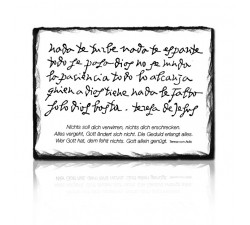 nada te turbe nada te espante
todo se pasa dios no se muda
la paciencia todo lo alcanza
quien a dios tiene nada le falta
solo dios basta. teresa de Jesus
Nichts soll dich verwirren, nichts dich erschrecken.
Alles vergeht, Gott ändert sich nicht. Die Geduld erlangt alles.
Wer Gott hat, dem fehlt nichts: Gott allein genügt. Teresa von Avila